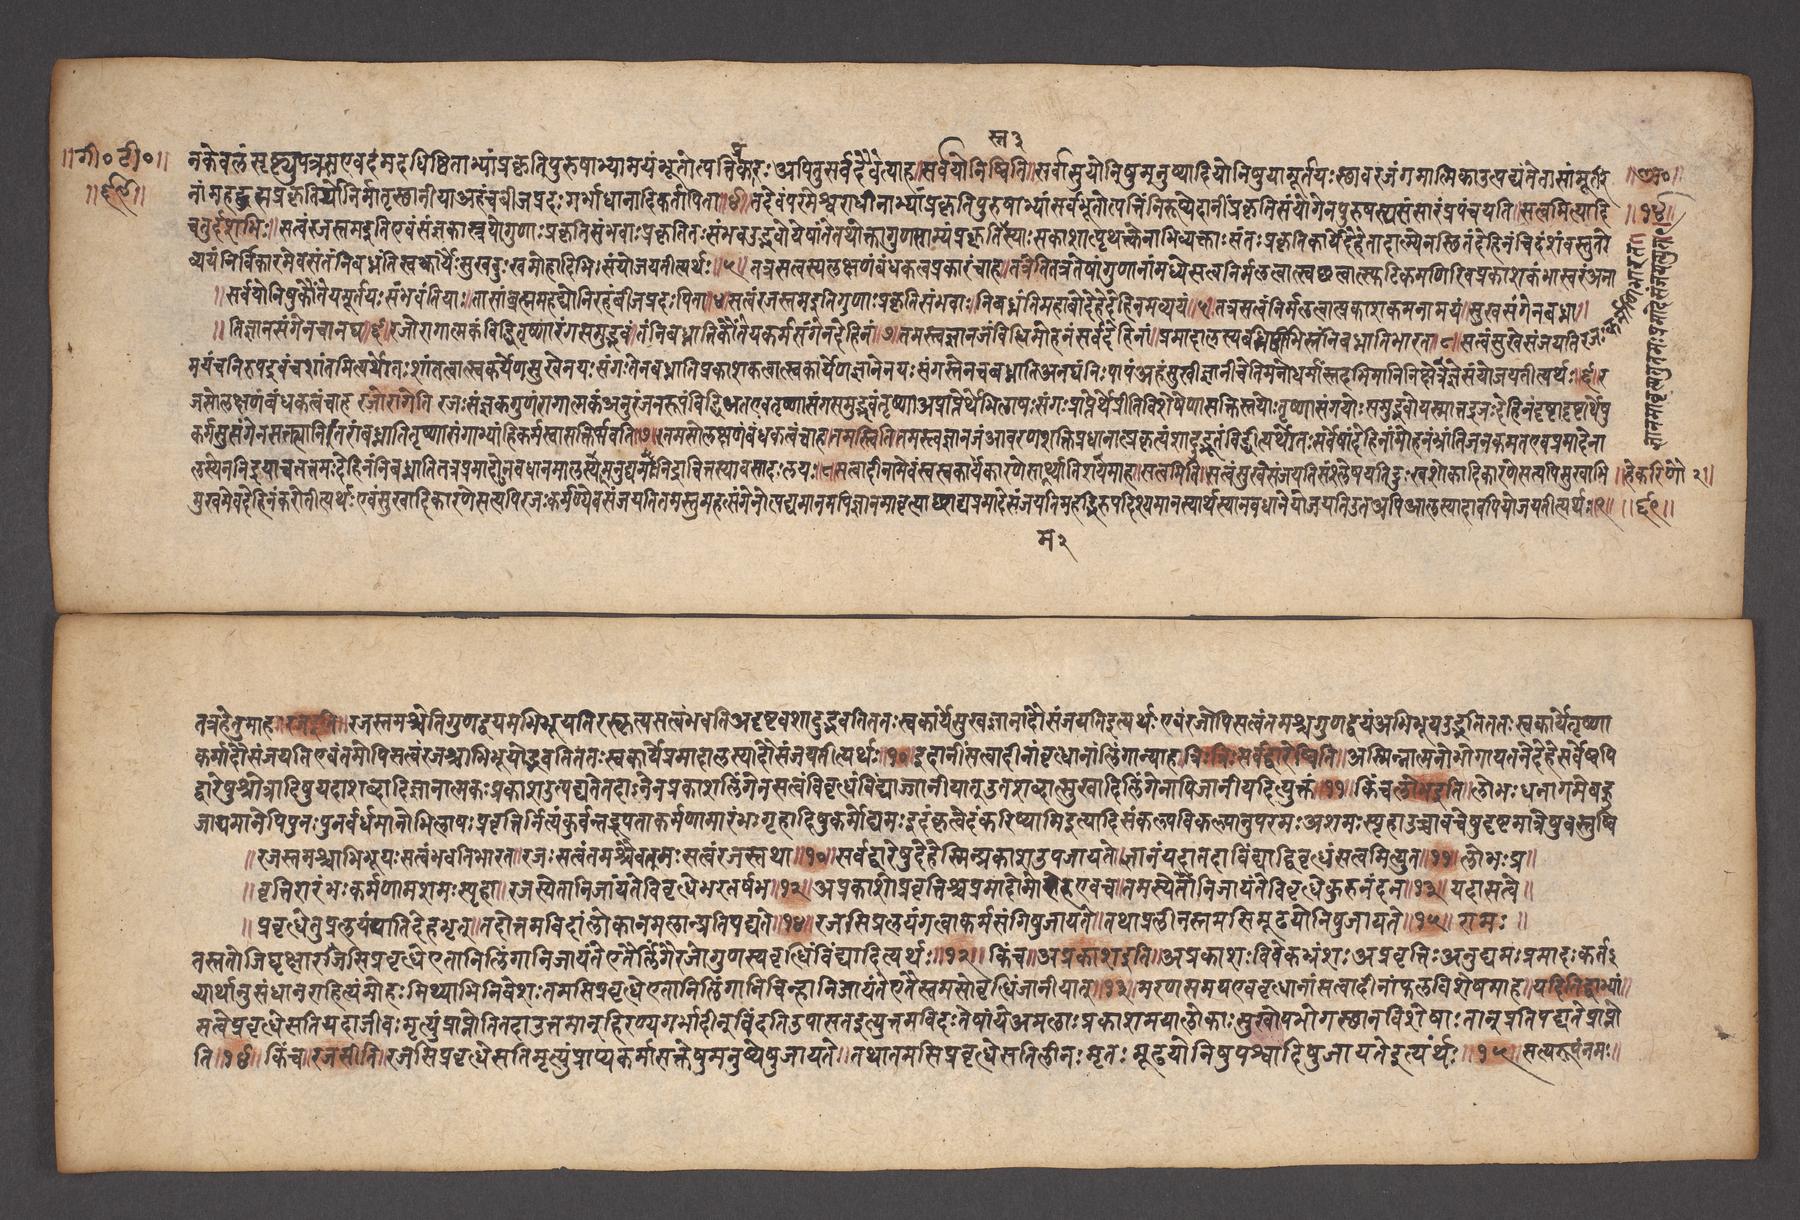 ॥गी०टी०॥
॥६९॥
स्त्र ३
न केवलं सृष्ट्युपक्रमएवदंमदधिष्ठिताभ्यांप्रकृतिपुरुषाभ्यामयंभूतोत्पत्तिप्रकारः अपितुसर्वदैवेत्याह॥सर्वयोनिष्विति॥सर्वासुयोनिषुमनुष्यादियोनिषुयामूर्तयःस्थावरजंगमात्मिकाउत्पद्यंतेतासांमूर्ती
॥अ०॥
॥१४॥
नांमहद्ब्रह्मप्रकृतिर्योनिर्मातृस्थानीयाअहंचबीजप्रदःगर्भाधानादिकर्तापिता॥४॥तदेवंपरमेश्वराधीनाभ्यांप्रकृतिपुरुषाभ्यांसर्वभूतोत्पत्तिंनिरूप्येदानींप्रकृतिसंयोगेनपुरुषस्यसंसारंप्रपंचयति॥सत्वमित्यादि
चतुर्दशभिः॥सत्वंरजस्तमइतिएवंसंज्ञकास्त्रयोगुणाःप्रकृतिसंभवाःप्रकृतितःसंभवउद्भवोयेषांतेतथोक्तागुणसाम्यंप्रकृतिस्तस्याःसकाशात्पृथक्त्केनाभिव्यक्ताःसंतःप्रकृतिकार्येदेहेतादात्म्येनस्थितंदेहिनंचिदंशंवस्तुतो
व्ययंनिर्विकारमेवसंतंनिबध्नंतिस्वकार्यैःसुखदुःखमोहादिभिःसंयोजयतीत्यर्थः॥५॥तत्रसत्वस्यलक्षणंबंधकत्वप्रकारंचाह॥तत्रेतितत्रतेषांगुणानांमध्येसत्वनिर्मलत्वात्स्वच्छत्वात्स्फटिकमणिरिवप्रकाशकंभास्वरंअना
॥सर्वयोनिषुकौंतेयमूर्तयःसंभवंतियाः॥तासांब्रह्ममहद्योनिरहंबीजप्रदःपिता॥४॥सत्वंरजस्तमइतिगुणाःप्रकृतिसंभवाः॥निबध्नंतिमहाबाहोदेहेदेहिनमव्ययं॥५॥तत्रसत्वंनिर्मलत्वात्प्रकाशकमनामयं॥सुखसंगेनबध्ना॥
॥तिज्ञानसंगेनचानघ॥६॥रजोरागात्मकंविद्धितृष्णासंगसमुद्भवं॥तंनिबध्नातिकौंतेयकर्मसंगेनदेहिनं॥७॥तमस्त्वज्ञानजंविद्धिमोहनंसर्वदेहिनां॥प्रमादालस्यनिद्राभिस्तंनिबध्नातिभारत॥८॥सत्वंसुखेसंजयतिरजः
कर्मणिभारत॥
ज्ञानमावृत्यतुतमःप्रमादेसंजयत्युत॥९॥
मयंचनिरुपद्रवंचशांतमित्यर्थोतःशांतत्वात्स्वकार्येणसुखेनयःसंगःतेनबध्नातिप्रकाशकत्वात्स्वकार्येणज्ञानेनयःसंगस्तेनचबध्नातिअनघनिःपापंअहंसुखीज्ञानीचेतिमनोधर्मांस्तदभिमानिनिक्षेत्रज्ञेसंयोजयतीत्यर्थः॥६॥र
जसोलक्षणंबंधकत्वंचाह रजोरागेति रजःसंज्ञकगुणंरागात्मकंअनुरंजनरूपंविद्धिअतएवतृष्णासंगसमुद्भवंतृष्णाअप्राप्तेर्थेभिलाषःसंगःप्राप्तेर्थेप्रीतिविशेषेणासक्तिस्तयोःतृष्णासंगयोःसमुद्भवोयस्मात्तद्रजःदेहिनंदृष्टादृष्टार्थेषु
कर्मसुसंगेनसक्त्यानितरांबध्नातितृष्णासंगाभ्यांहिकर्मस्वासक्तिर्भवति॥७॥तमसोलक्षणंबंधकत्वंचाह॥तमस्त्विति॥तमस्त्वज्ञानजंआवरणशक्तिप्रधानात्प्रकृत्यंशादुद्भूतंविद्धीत्यर्थोतःसर्वेषांदेहिनांमोहनंभ्रांतिजनकमतएवप्रमादेना
लस्येननिद्रयाचतत्तमःदेहिनंनिबध्नातितत्रप्रमादोनवधानमालस्यमनुद्यमोनिद्राचित्तस्यावसादःलयः॥८॥सत्वादीनामेवंस्वस्वकार्यकारणेसामर्थ्यातिशयमाह॥सत्वमिति॥सत्वंसुखेसंजयतिसंश्लेषयतिदुःखशोकादिकारणेसत्यपिसुखाभि
॥हेकरिणो २॥
मुखमेवदेहिनंकरोतीत्यर्थःएवंसुखादिकारणेसत्यपिरजःकर्मण्येवसंजयतितमस्तुमहत्संगेनोत्पद्यमानमपिज्ञानमावृत्याच्छाद्यप्रमादेसंजयतिमहद्भिरुपदिश्यमानस्यार्थस्यानवधानेयोजयतिउतअपिआलस्यादावपियोजयतीत्यर्थः॥९॥
॥६९॥
म २
तत्रहेतुमाह॥रजइति॥रजस्तमश्चेतिगुणद्वयमभिभूयतिरस्कृत्यसत्वंभवतिअदृष्टवशादुद्भवतिततःस्वकार्येसुखज्ञानादौसंजयतिइत्यर्थः एवंरजोपिसत्वंतमश्चगुणद्वयंअभिभूयउद्भूतिततःस्वकार्येतृष्णा
कर्मादौसंजयतिएवंतमोपिसत्वंरजश्चाभिभूयोद्भवतिततःस्वकार्येप्रमादालस्यादौसंजयतीत्यर्थः॥१०॥इदानींसत्वादीनांवृद्धानांलिंगान्याहत्रिभिःसर्वद्वारेष्विति॥अस्मिन्नात्मनोभोगायतनेदेहेसर्वेष्वपि
द्वारेषुश्रोत्रादिषुयदाशब्दादिज्ञानात्मकःप्रकाशउत्पद्यतेतदाऽनेनप्रकाशलिंगेनसत्वंविवृद्धंविंद्याज्जानीयात्उतशब्दात्सुखादिलिंगेनापिजानीयदित्युक्तं॥११॥किंच॥लोभइति॥लोभःधनागमेबहु
जायमानेपिपुनःपुनर्वर्धमानोभिलाषःप्रवृत्तिर्नित्यंकुर्वन्रूपताकर्मणामारंभःगृहादिषुकर्मोद्यमःइदंकृत्वेदंकरिष्यामिइत्यादिसंकल्पविकल्पानुपरमःअशमःस्पृहाउच्चावचेषुदृष्टमात्रेषुवस्तुष्वि
॥रजस्तमश्चाभिभूयःसत्वंभवतिभारत॥रजःसत्वंतमश्चैवतमःसत्वंरजस्तथा॥१०॥सर्वद्वारेषुदेहेस्मिन्प्रकाशउपजायते॥ज्ञानंयदातदाविंद्याद्विवृद्धंसत्वमित्युत॥११॥लोभःप्र॥
॥वृत्तिरारंभःकर्मणामशमःस्पृहा॥रजस्येतानिजायंतेविवृद्धेभरतर्षभ॥१२॥अप्रकाशोप्रवृत्तिश्चप्रमादोमोहएवच॥तमस्येतानिजायंतेविवृद्धेकुरुनंदन॥१३॥यदासत्वे॥
॥प्रवृद्धेतुप्रलयंयातिदेहभृत्॥तदोत्तमविदांलोकानमलान्प्रतिपद्यते॥१४॥रजसिप्रलयंगत्वाकर्मसंगिषुजायते॥तथाप्रलीनस्तमसिमूढयोनिषुजायते॥१५॥ रामः॥
तस्ततोजिघृक्षारजसिप्रवृद्धेएतानिलिंगानिजायंतेएतैर्लिंगैरजोगुणस्यवृद्धिंविंद्यादित्यर्थः॥१२॥किंच॥अप्रकाशइति॥अप्रकाशःविवेकभ्रंशःअप्रवृत्तिःअनुद्यमःप्रमादःकर्त
व्यार्थानुसंधानराहित्यंमोहःमिथ्याभिनिवेशःतमसिप्रवृद्धेएतानिलिंगानिचिन्हानिजायंतेएतैस्तमसोवृद्धिंजानीयात्॥१३॥मरणसमयएववृद्धानांसत्वादीनांफलविशेषमाह॥यदितिद्वाभ्यां॥
सत्वेप्रवृद्धेसतियदाजीवःमृत्युंप्राप्नोतितदाउत्तमान्हिरण्यगर्भादीन्विंदतिउपासतइत्युत्तमविदःतेषांयेअमलाःप्रकाशमयालोकाःसुखोपभोगस्थानविशेषाःतान्प्रतिपद्यतेप्राप्नो
ति॥१४॥ किंच॥रजसीति॥रजसिप्रवृद्धेसतिमृत्युंप्राप्यकर्मासक्तेषुमनुष्येषुजायते॥तथातमसिप्रवृद्धेसतिलीनःमृतःमूढयोनिषुपश्वादिषुजायतेइत्यर्थः॥१५॥सत्यरूपंनमः॥